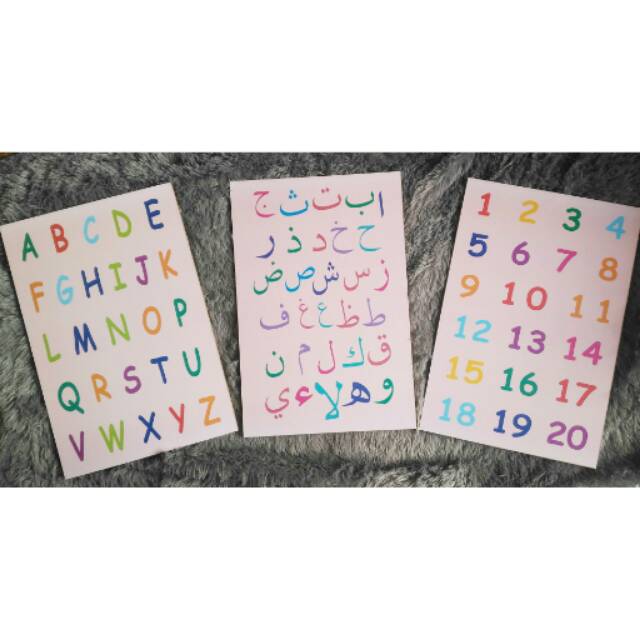 A B C D E
F G H I J K
L M N O P
Q R S T U
V W X Y Z
ا ب ت ث ج
ح خ د ذ ر
ز س ش ص ض
ط ظ ع غ ف
ق ك ل م ن
و ه لا ء ي
1 2 3 4
5 6 7 8
9 10 11
12 13 14
15 16 17
18 19 20